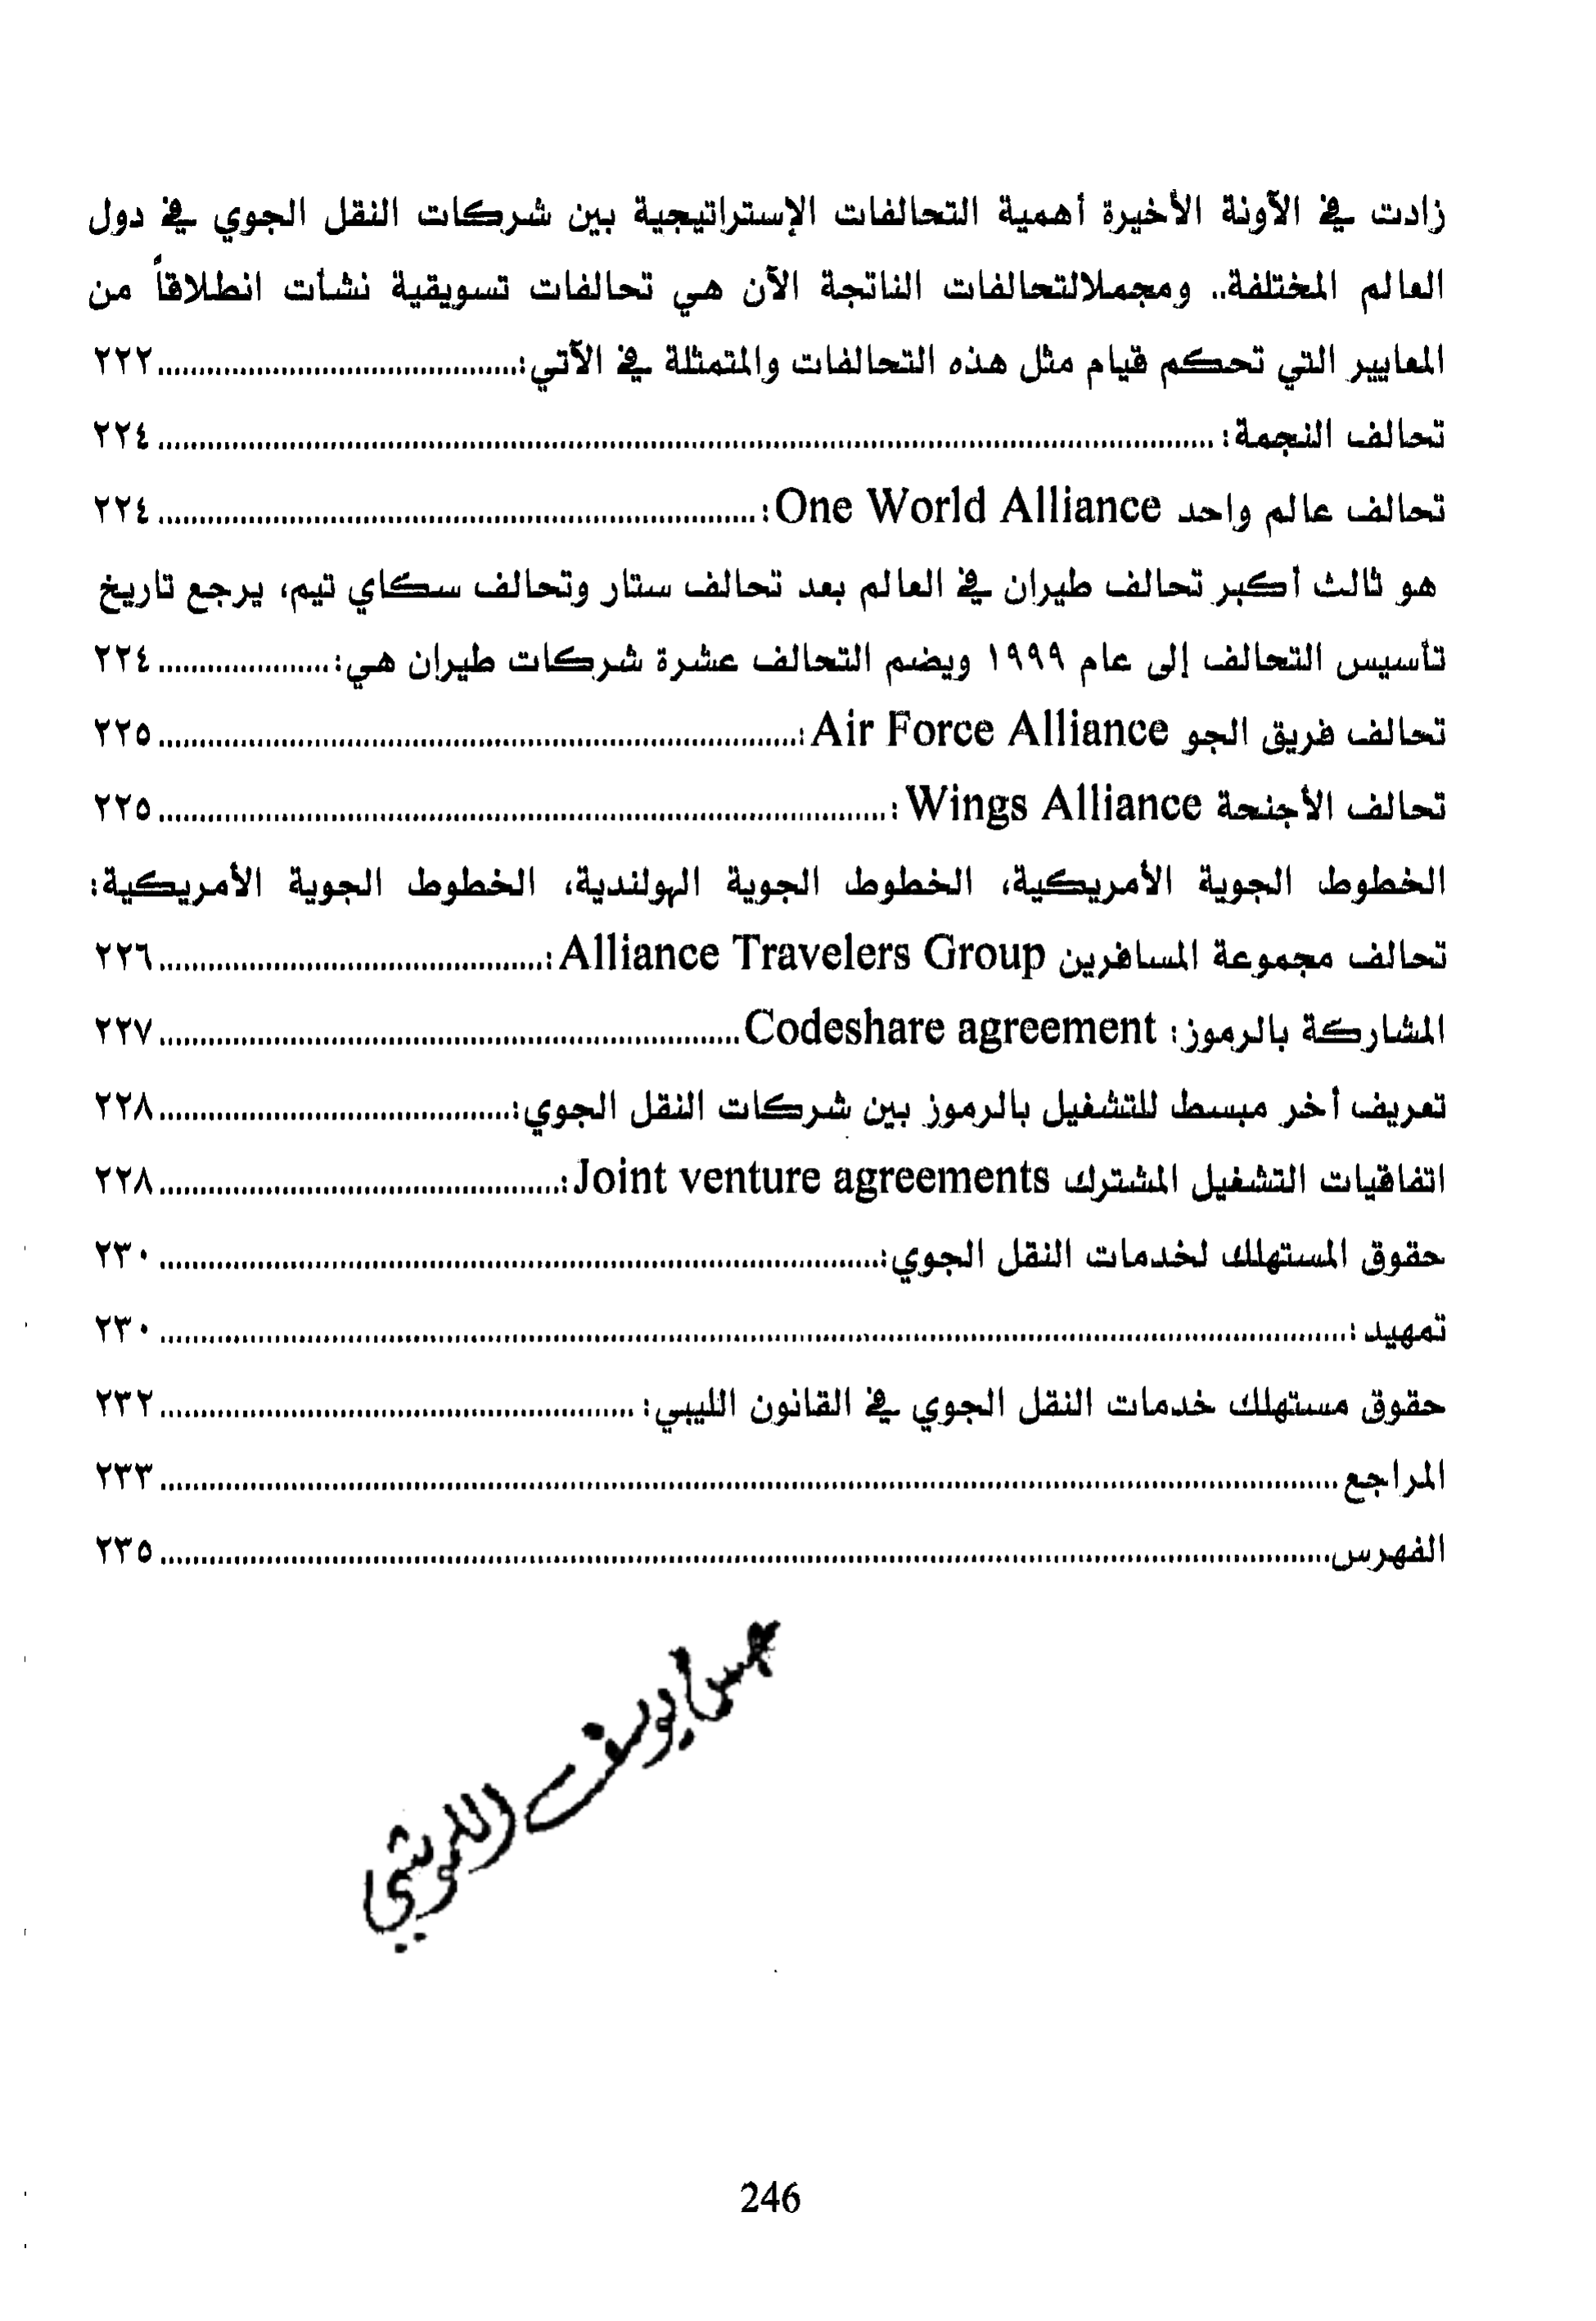 زادت في الآونة الأخيرة أهمية التحالفات الإستراتيجية بين شركات النقل الجوي في دول
العالم المختلفة.. ومجملالتحالفات الناتجة الآن هي تحالفات تسويقية نشأت انطلاقاً من
المعايير التي تحكم قيام مثل هذه التحالفات والمتمثلة في الآتي:............................................٢٢٢
تحالف النجمة:............................................................................................٢٢٤
تحالف عالم واحد One World Alliance:............................................................٢٢٤
هو ثالث أكبر تحالف طيران في العالم بعد تحالف ستار وتحالف سكاي تيم، يرجع تاريخ
تأسيس التحالف إلى عام ١٩٩٩ ويضم التحالف عشرة شركات طيران هي:.....................٢٢٤
تحالف فريق الجو Air Force Alliance:............................................................٢٢٥
تحالف الأجنحة Wings Alliance:....................................................................٢٢٥
الخطوط الجوية الأمريكية، الخطوط الجوية الهولندية، الخطوط الجوية الأمريكية:
تحالف مجموعة المسافرين Alliance Travelers Group:............................................٢٢٦
المشاركة بالرموز: Codeshare agreement............................................................٢٢٧
تعريف أخر مبسط للتشغيل بالرموز بين شركات النقل الجوي:............................................٢٢٨
اتفاقيات التشغيل المشترك Joint venture agreements:............................................٢٢٨
حقوق المستهلك لخدمات النقل الجوي:....................................................................٢٣٠
تمهيد:............................................................................................................٢٣٠
حقوق مستهلك خدمات النقل الجوي في القانون الليبي:............................................٢٣٢
المراجع............................................................................................................٢٣٣
الفهرس............................................................................................................٢٣٥
يوسف
246